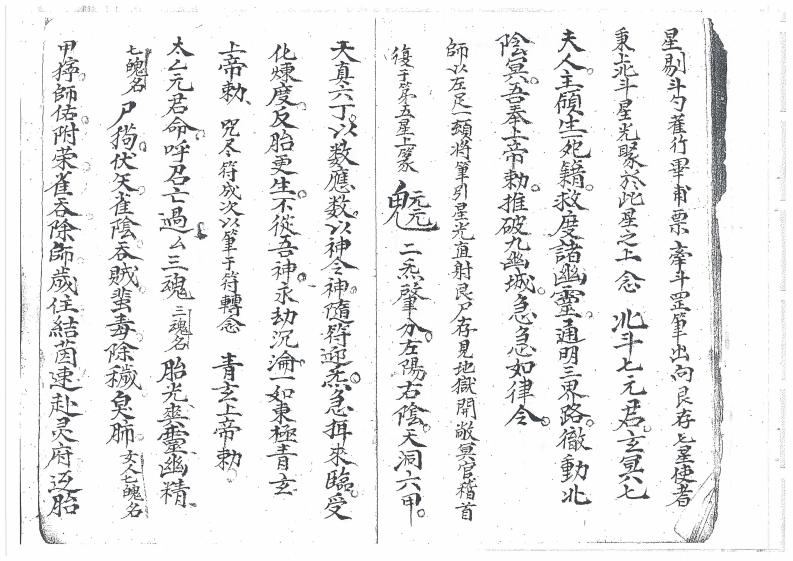 星剔斗勺雚行畢甫票牽斗罡筆出向艮存七星使者
秉上兆斗星光聚於此星之上念 北斗七元君玄冥七
夫人主領生死籍救度諸幽靈通明三界路徹動北
陰冥吾奉上帝勅推破九幽城急急如律令
師以左足一頓將筆引星光直射艮户存見地獄開敞冥官稽首
復于第五星上篆 二炁肇分左陽右陰天洞六甲
天真六丁以數應數以神令神隨符迎炁急拜來臨受
化煉度反胎更生不從吾神永劫沉淪一如東極青玄
上帝勅 咒尽符成次以筆于符轉念 青玄上帝勅
太乙元君命呼召亡過厶三魂 三魂名 胎光爽靈幽精
七魄名 尸狗伏矢雀陰吞賊蜚毒除穢臭肺 女人七魄名
甲㝊師佑附荣雀吞除師歲住結茵速赴灵府返胎